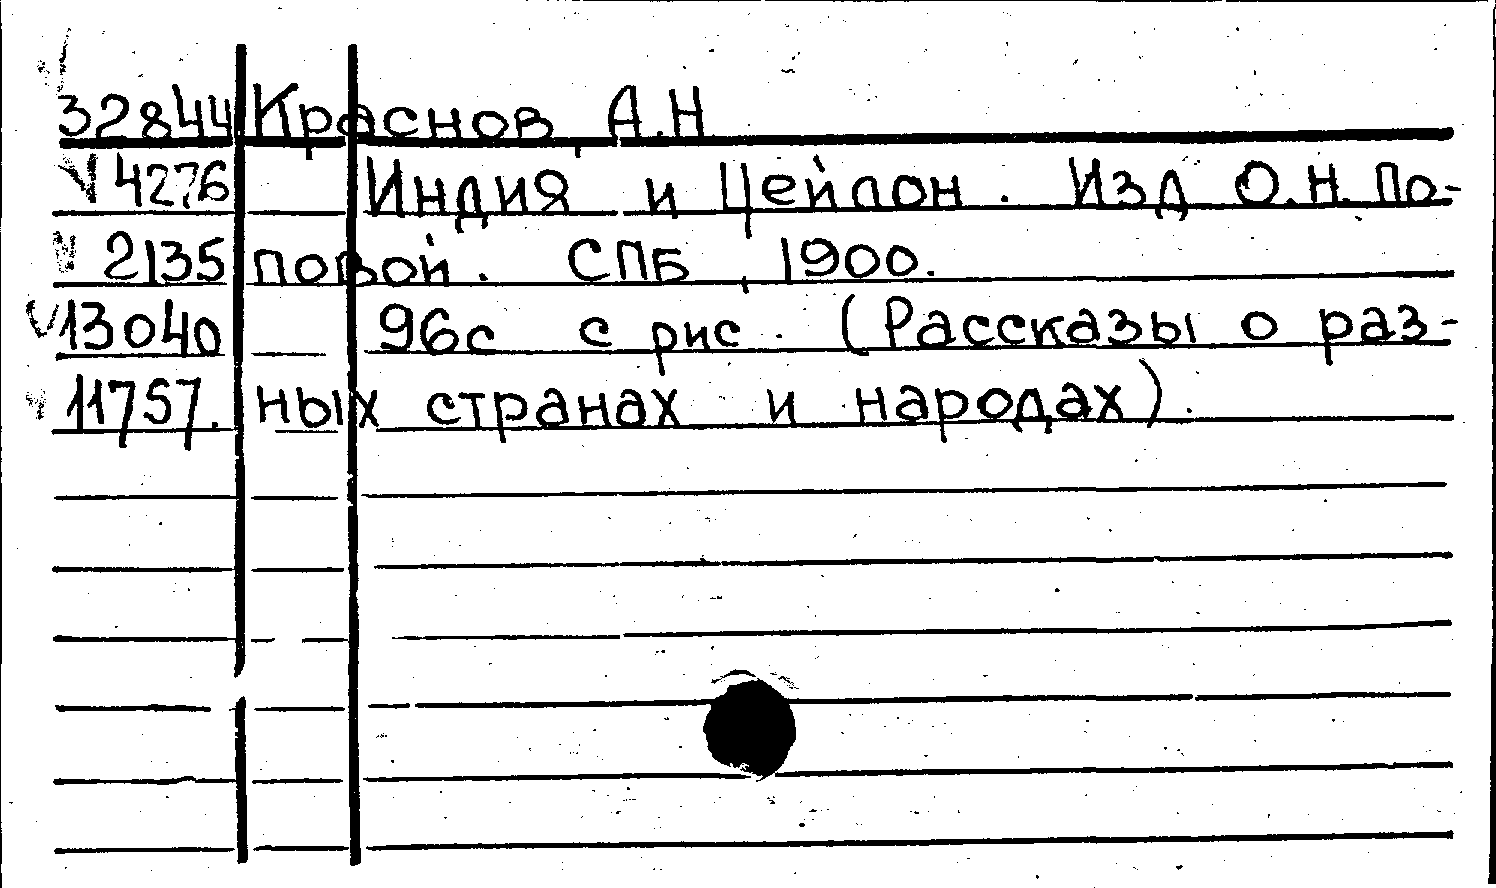 32844 Краснов, А.Н
V 4276 Индия и Цейлон. Изд О.Н. По-
V 2135 повой. СПБ, 1900.
V 13040 96с с рис. (Рассказы о раз-
V 11757. ных странах и народах).